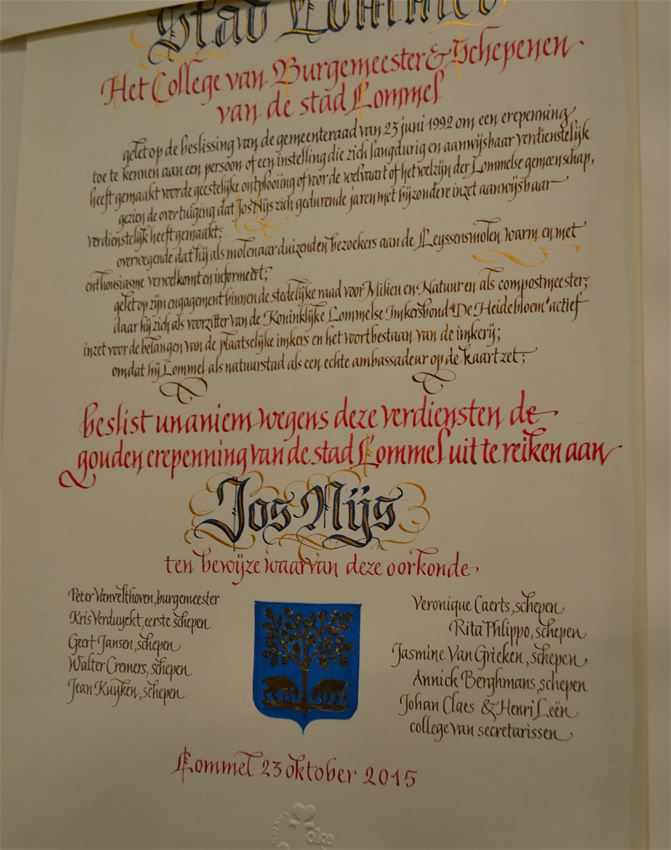 Stad Lommel
Het College van Burgemeester & Schepenen
van de stad Lommel
gelet op de beslissing van de gemeenteraad van 23 juni 1992 om een erepenning
toe te kennen aan een persoon of een instelling die zich langdurig en aanwijsbaar verdienstelijk
heeft gemaakt voor de geestelijke ontplooiing of voor de welvaart of het welzijn der Lommelse gemeenschap,
gezien de overtuiging dat Jos Nijs zich gedurende jaren met bijzondere inzet aanwijsbaar
verdienstelijk heeft gemaakt;
overwegende dat hij als molenaar duizenden bezoekers aan de Leyssensmolen warm en met
enthousiasme verwelkomt en informeert;
gelet op zijn engagement binnen de stedelijke raad voor Milieu en Natuur en als compostmeester;
daar hij zich als voorzitter van de Koninklijke Lommelse Imkersbond "De Heidebloem" actief
inzet voor de belangen van de plaatselijke imkers en het voortbestaan van de imkerij;
omdat hij Lommel als natuurstad als een echte ambassadeur op de kaart zet;
beslist unaniem wegens deze verdiensten de
gouden erepenning van de stad Lommel uit te reiken aan
Jos Nijs
ten bewijze waarvan deze oorkonde.
Peter Vanvelthoven, burgemeester
Kris Verduyckt, eerste schepen
Geert Jansen, schepen
Walter Cremers, schepen
Jean Kuyken, schepen
Veronique Caerts, schepen
Rita Phlippo, schepen
Jasmine Van Grieken, schepen
Annick Berghmans, schepen
Johan Claes & Henri Leën
college van secretarissen
Lommel 23 oktober 2015